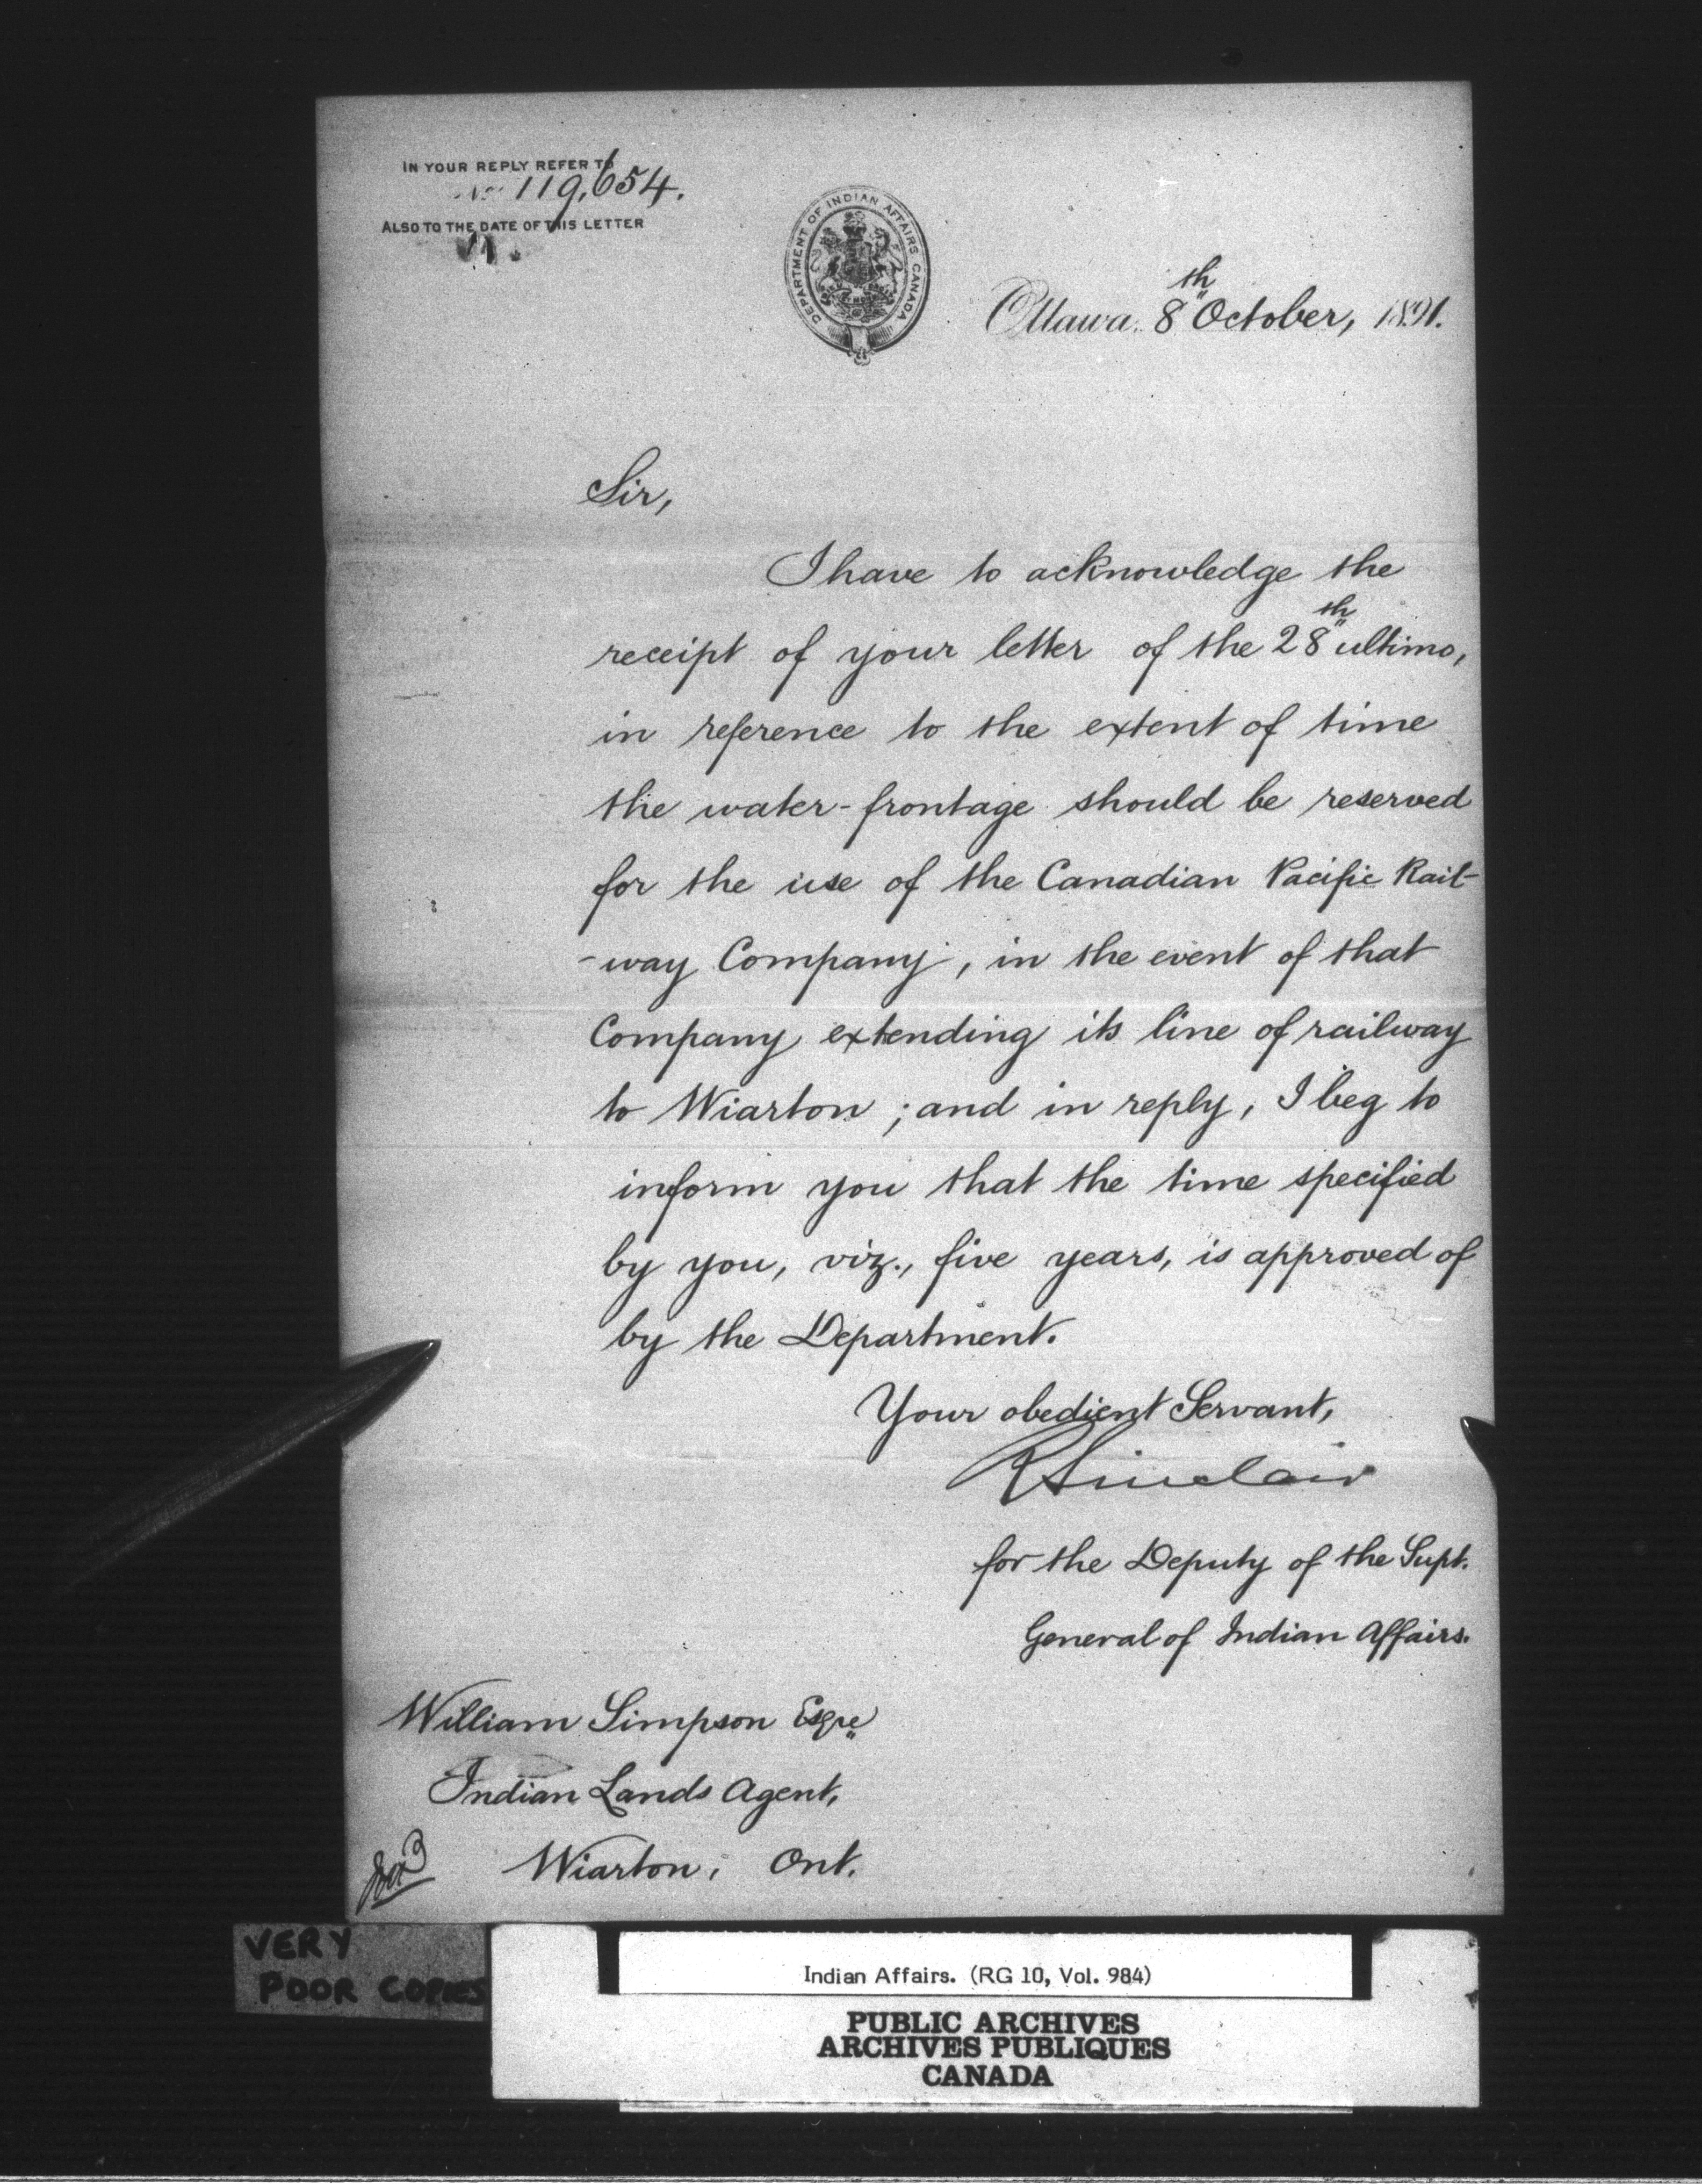 IN YOUR REPLY REFER TO
No. 119,654.
ALSO TO THE DATE OF THIS LETTER
DEPARTMENT OF INDIAN AFFAIRS CANADA
Ottawa, 8th October, 1891.
Sir,
I have to acknowledge the
receipt of your letter of the 28th ultimo,
in reference to the extent of time
the water-frontage should be reserved
for the use of the Canadian Pacific Rail-
-way Company, in the event of that
Company extending its line of railway
to Wiarton; and in reply, I beg to
inform you that the time specified
by you, viz., five years, is approved of
by the Department.
Your obedient Servant,
R Sinclair
for the Deputy of the Supt.
General of Indian Affairs.
William Simpson Esqre
Indian Lands Agent,
Wiarton, Ont.
VERY
POOR COPIES
Indian Affairs. (RG 10, Vol. 984)
PUBLIC ARCHIVES
ARCHIVES PUBLIQUES
CANADA